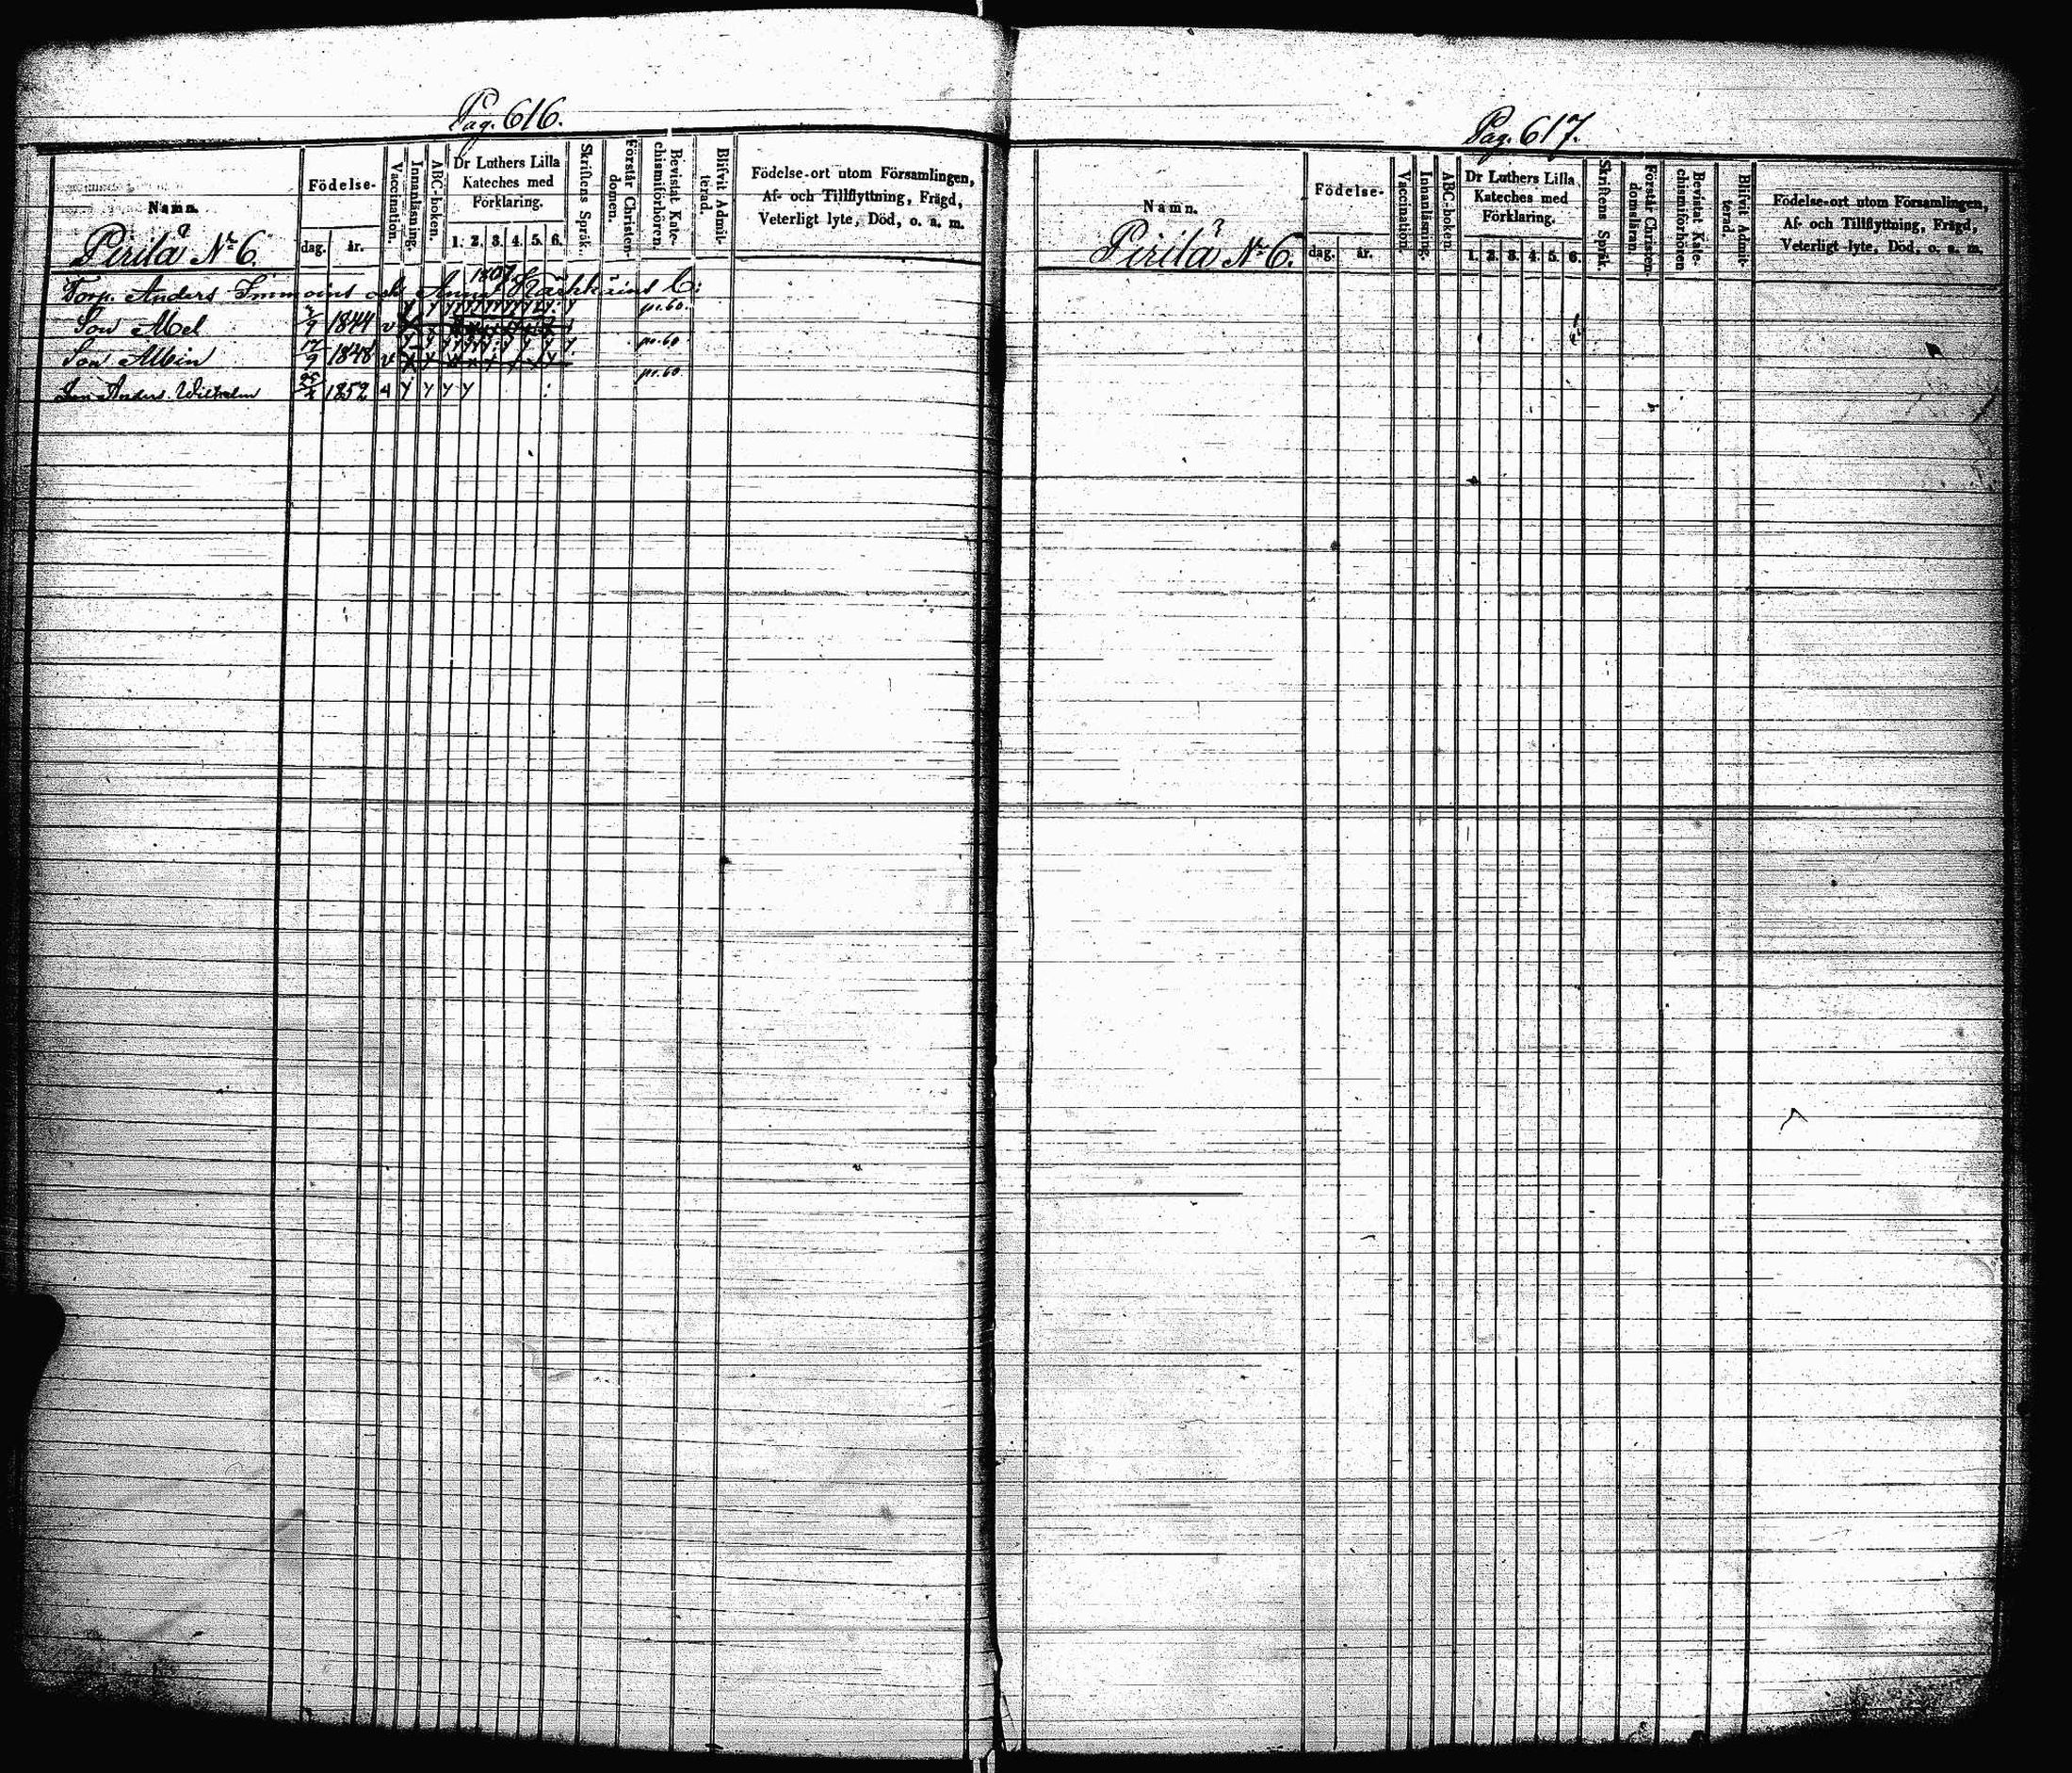 Pag. 616.
Namn.
Födelse-
dag. år.
Vaccination.
Innanläsning.
ABC-boken.
Dr Luthers Lilla
Kateches med
Förklaring.
1. 2. 3. 4. 5. 6.
Skriftens Språk.
Förstår Christen-
domen.
Bevistat Kate-
chismiförhören.
Blifvit Admit-
terad.
Födelse-ort utom Församlingen,
Af- och Tillflyttning, Frägd,
Veterligt lyte, Död, o. a. m.
Pirilä № 6.
Torp. Anders Immoins och Anna Kärkkäins b:
Son Abel 9 1844 v pr. 60.
Son Albin 17/9 1848 v pr. 60
Son Anders Wilhelm 1852 pr. 60
Pag. 617.
Namn.
Födelse-
dag. år.
Vaccination.
Innanläsning.
ABC-boken.
Dr Luthers Lilla
Kateches med
Förklaring.
1. 2. 3. 4. 5. 6.
Skriftens Språk.
Förstår Christen-
domsläran.
Bevistat Kate-
chismiförhören
Blifvit Admit-
terad.
Födelse-ort utom Församlingen,
Af- och Tillflyttning, Frägd,
Veterligt lyte, Död, o. a. m.
Pirilä № 6.